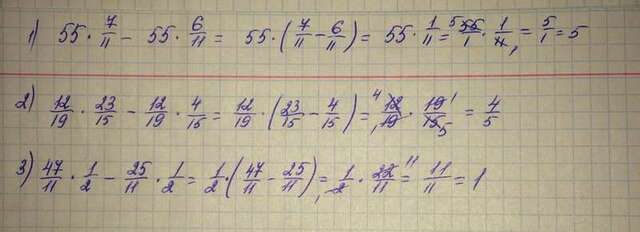 1) 55 · 7/11 − 55 · 6/11 = 55 · (7/11 − 6/11) = 55 · 1/11 = 5 55/1 · 1/11 1 = 5/1 = 5
2) 12/19 · 23/15 − 12/19 · 4/15 = 12/19 · (23/15 − 4/15) = 4 12/19 1 · 19/15 1 5 = 4/5
3) 47/11 · 1/2 − 25/11 · 1/2 = 1/2 · (47/11 − 25/11) = 1/2 1 · 22/11 11 = 11/11 = 1